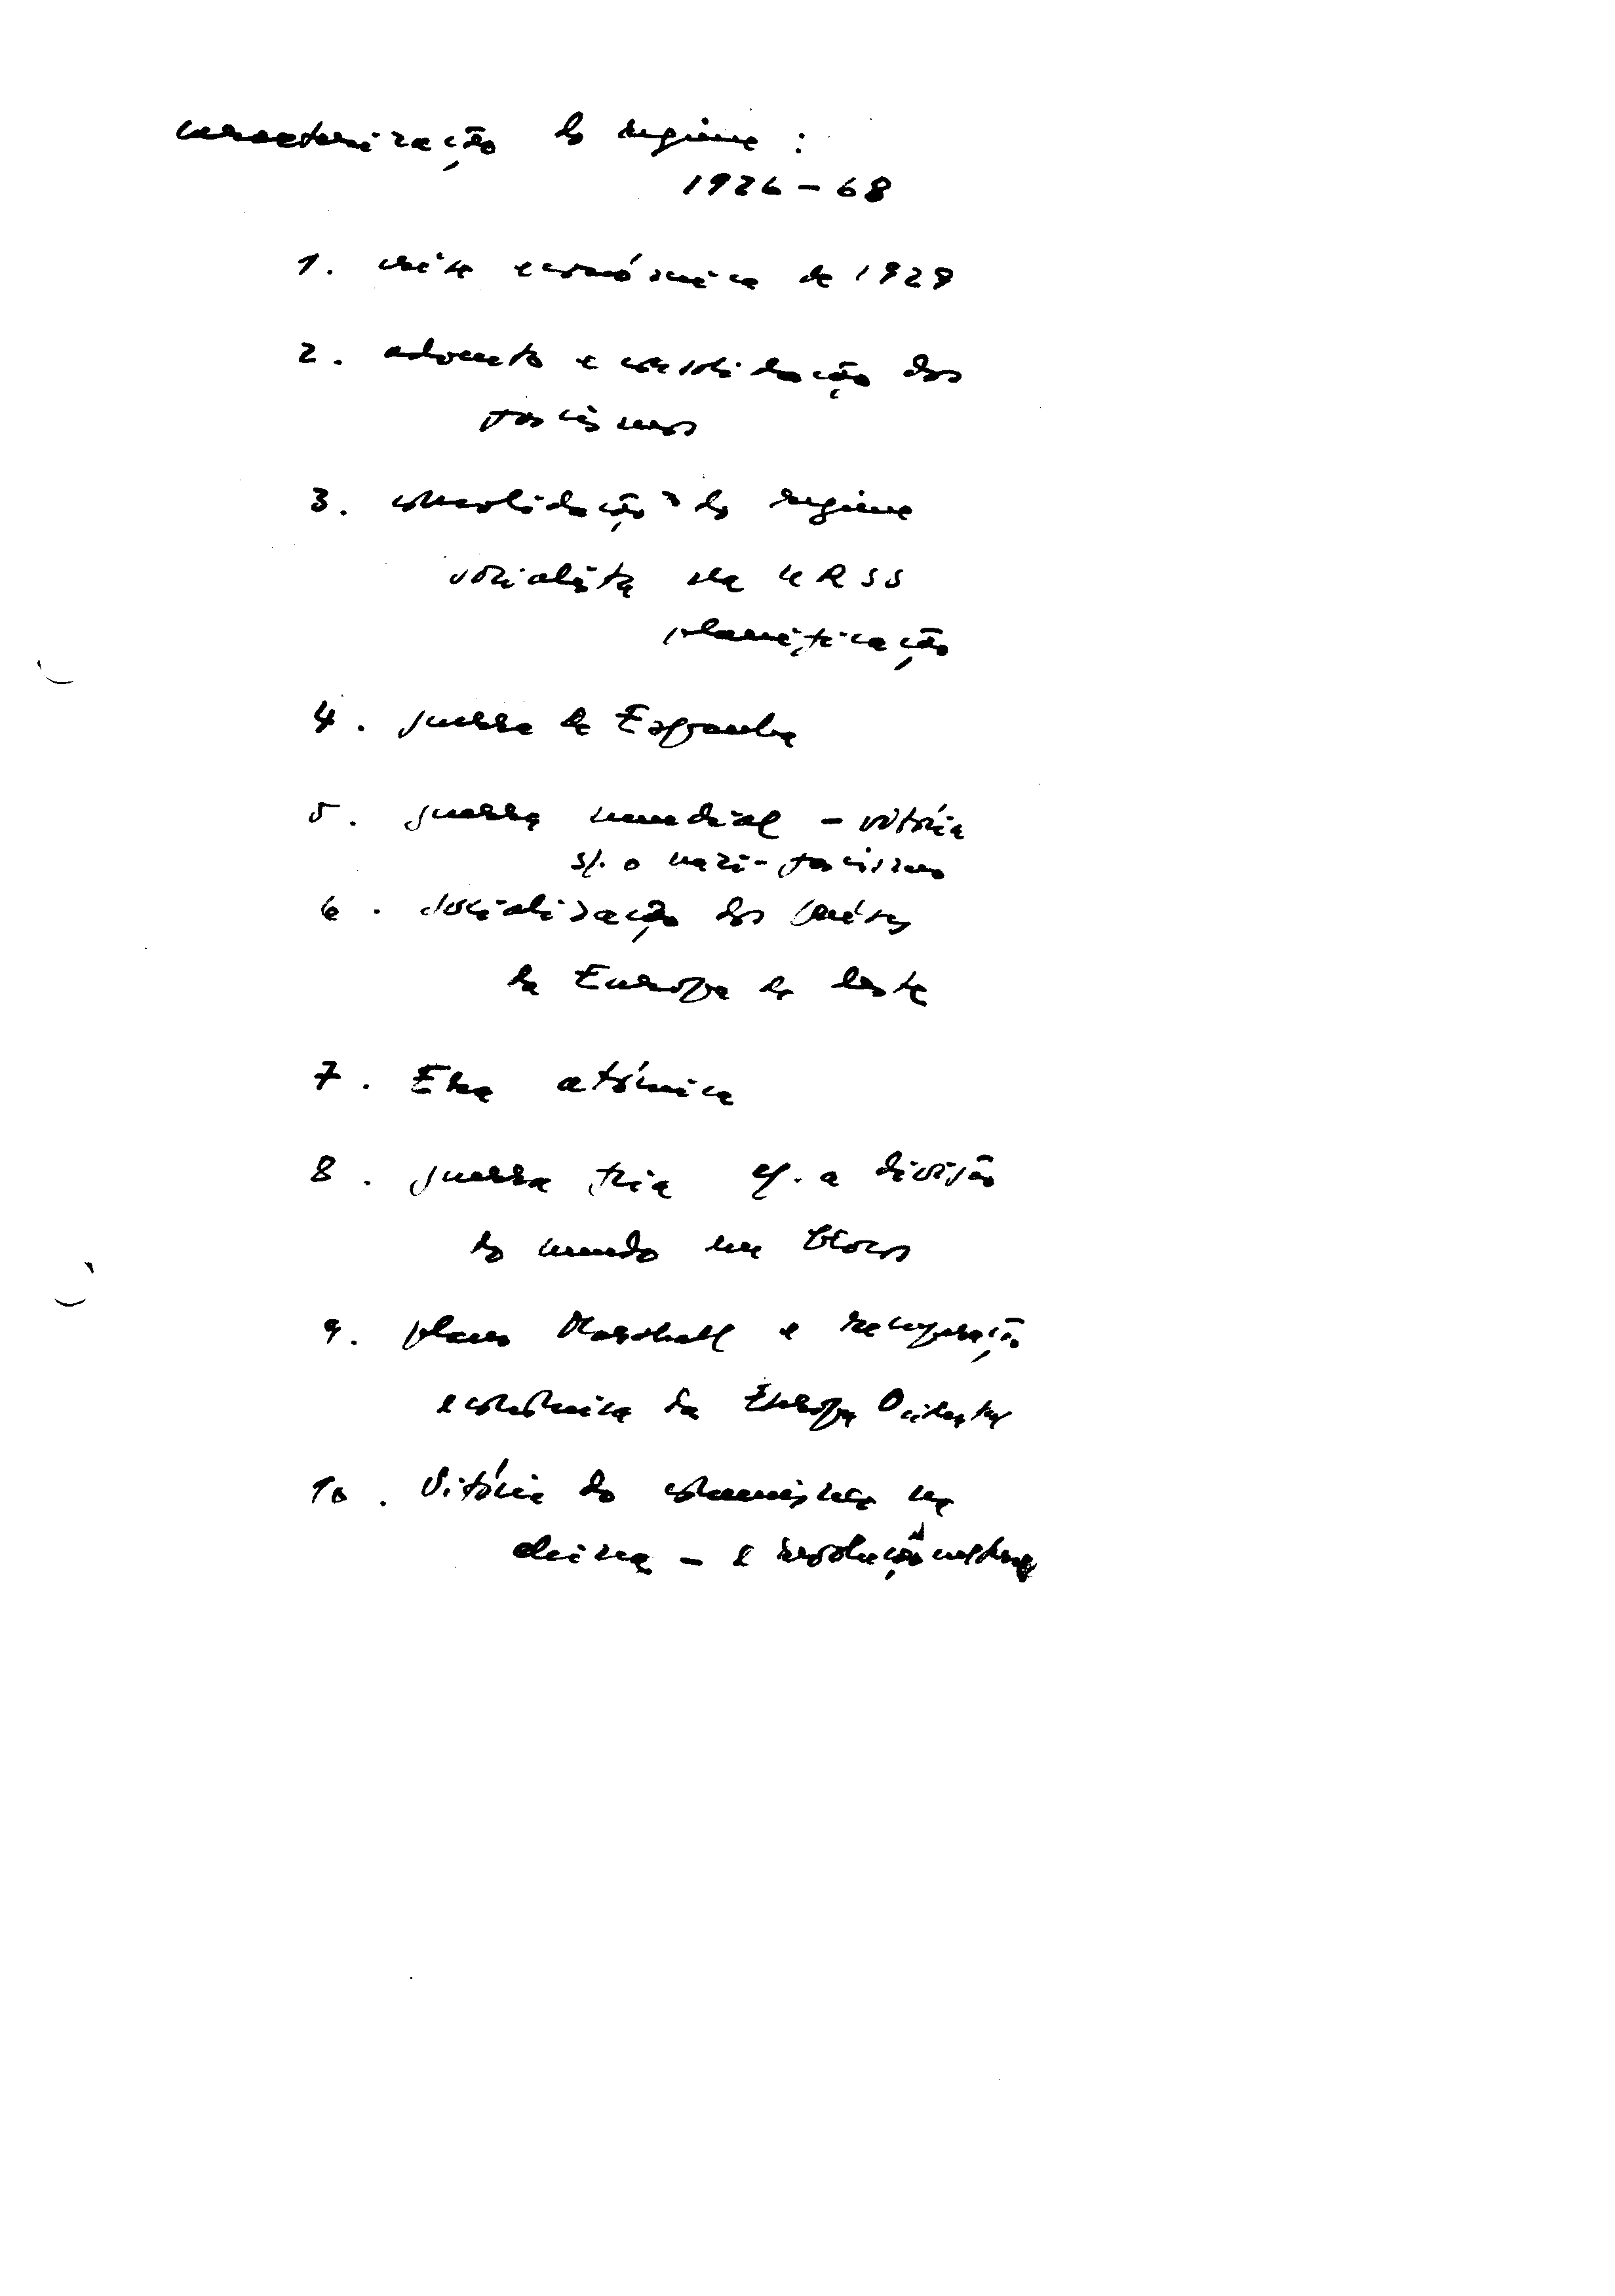 caracterização do regime :
1926 - 68
1. crise económica de 1929
2. advento e consolidação dos
fascismos
3. consolidação do regime
socialista na URSS
planificação
4. guerra de Espanha
5. guerra mundial - vitória
s/. o nazi-fascismo
6. socialização dos países
da Europa do leste
7. Era atómica
8. guerra fria c/. a divisão
do mundo em blocos
9. plano Marshall e recuperação
económica da Europa Ocidental
10. Vitória do comunismo na
china - e revolução cultural